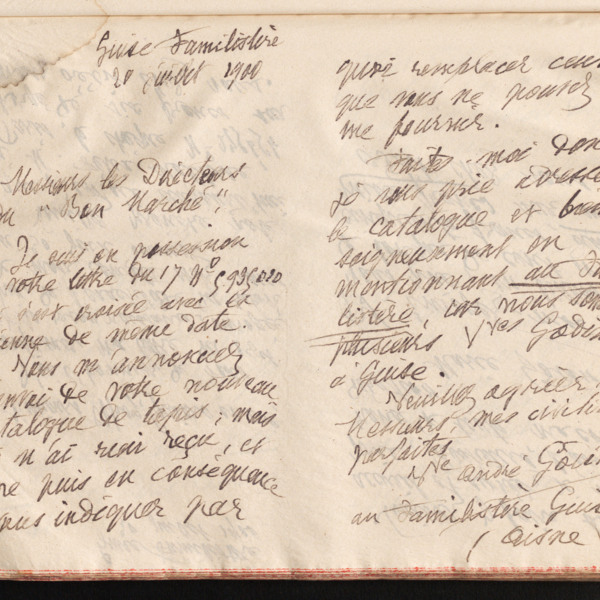 Guise Familistère
20 juillet 1900
Messieurs les Directeurs
du "Bon Marché",
Je suis en possession
votre lettre du 17 N°
s'est croisée avec la
mienne de même date.
Vous m'annoncez
envoi de votre nouveau
catalogue de tapis; mais
n'ai rien reçu, et
ne puis en conséquence
vous indiquer par
quoi remplacer ceux
que vous ne pouvez
me fournir.
Faites-moi donc
je vous prie adresser
le catalogue et bien
soigneusement en
mentionnant au Fami
listère, car nous som
plusieurs Vves Godin
à Guise.
Veuillez agréer
Messieurs, mes civili
parfaites
Vve andré Godin
au Familistère Guise
(Aisne)